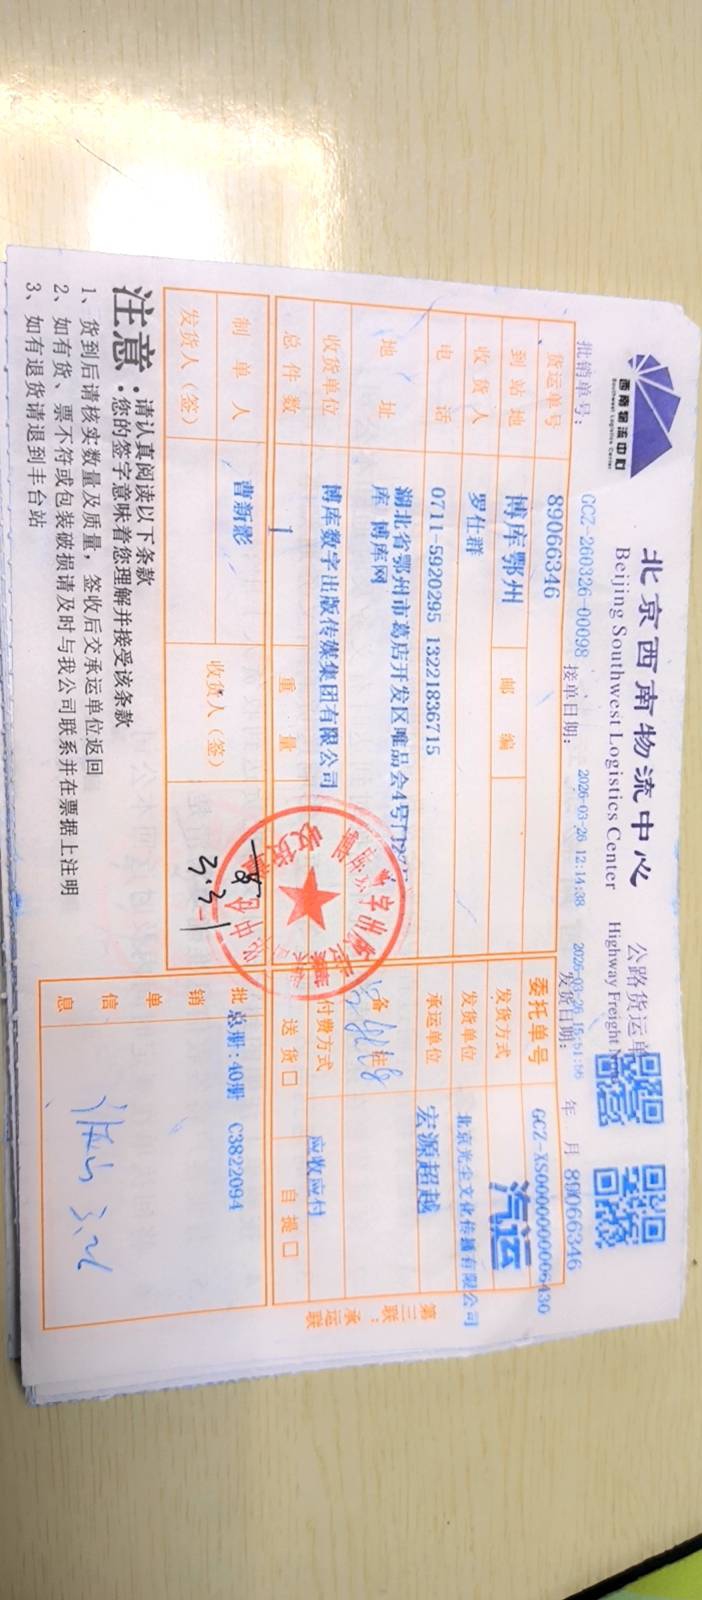 西南物流中心
Southwest Logistics Center
北京西南物流中心
Beijing Southwest Logistics Center
公路货运单
Highway Freight
批销单号：
GCZ-260326-00098
接单日期：
2026-03-26 12:14:38
发货日期：
年 月
89066346
货运单号
89066346
委托单号
GCZ-XS0000000006430
到站地
博库鄂州
邮编
发货方式
汽运
收货人
罗仕群
发货单位
北京光尘文化传播有限公司
电话
0711-5920295 13221836715
承运单位
宏源超越
地址
湖北省鄂州市葛店开发区唯品会4号门
库 博库网
备注
收货单位
博库数字出版传媒集团有限公司
付费方式
应收应付
总件数
1
重量
送货□
自提□
制单人
曹新影
收货人（签）
3.31
发货人（签）
批销单信息
总册：40册 C3822094
3.26
第三联：承运联
收货专
注意：
请认真阅读以下条款
您的签字意味着您理解并接受该条款
1、货到后请核实数量及质量，签收后交承运单位返回
2、如有货、票不符或包装破损请及时与我公司联系并在票据上注明
3、如有退货请退到丰台站